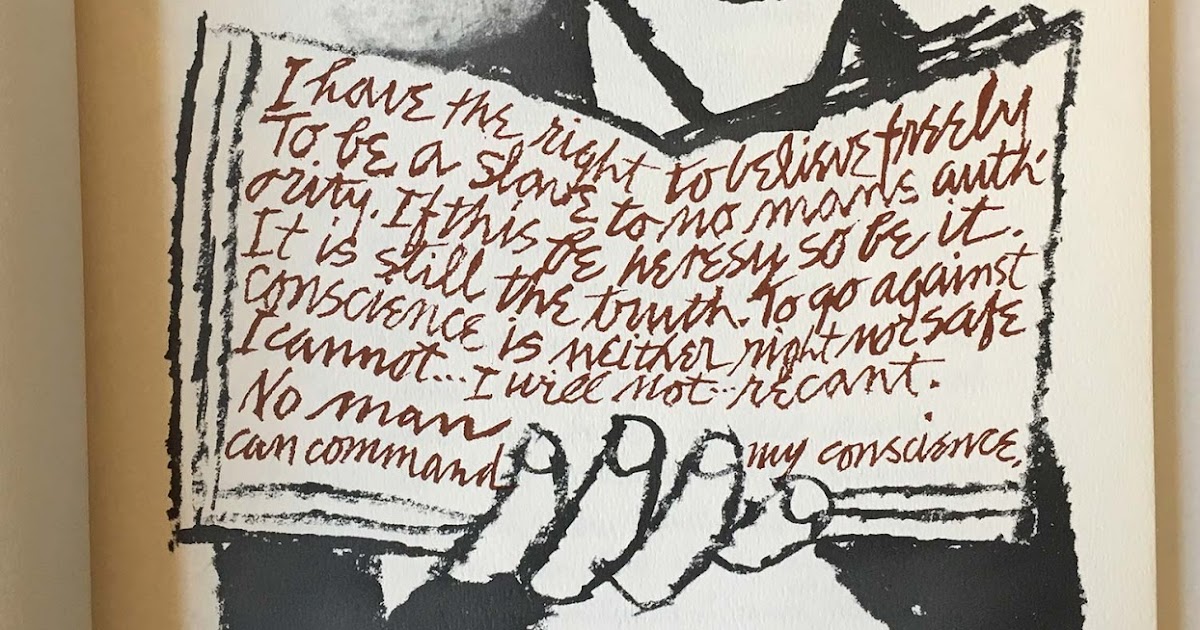 I have the right to believe freely
To be a slave to no mans auth-
ority. If this be heresy so be it.
It is still the truth. To go against
conscience is neither right nor safe
I cannot... I will not... recant.
No man
can command my conscience.